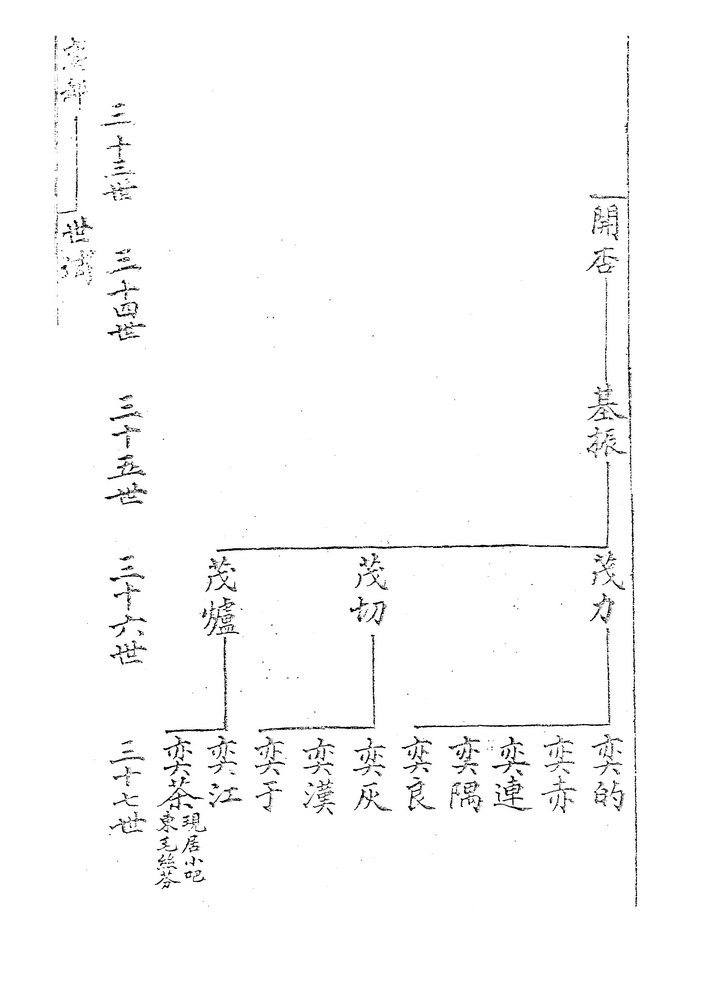 開否
基振
茂力
茂切
茂爐
奕的
奕赤
奕連
奕隅
奕良
奕灰
奕漢
奕于
奕江
奕茶
現居小吧
東毛絲芬
三十三世
三十四世
三十五世
三十六世
三十七世
世